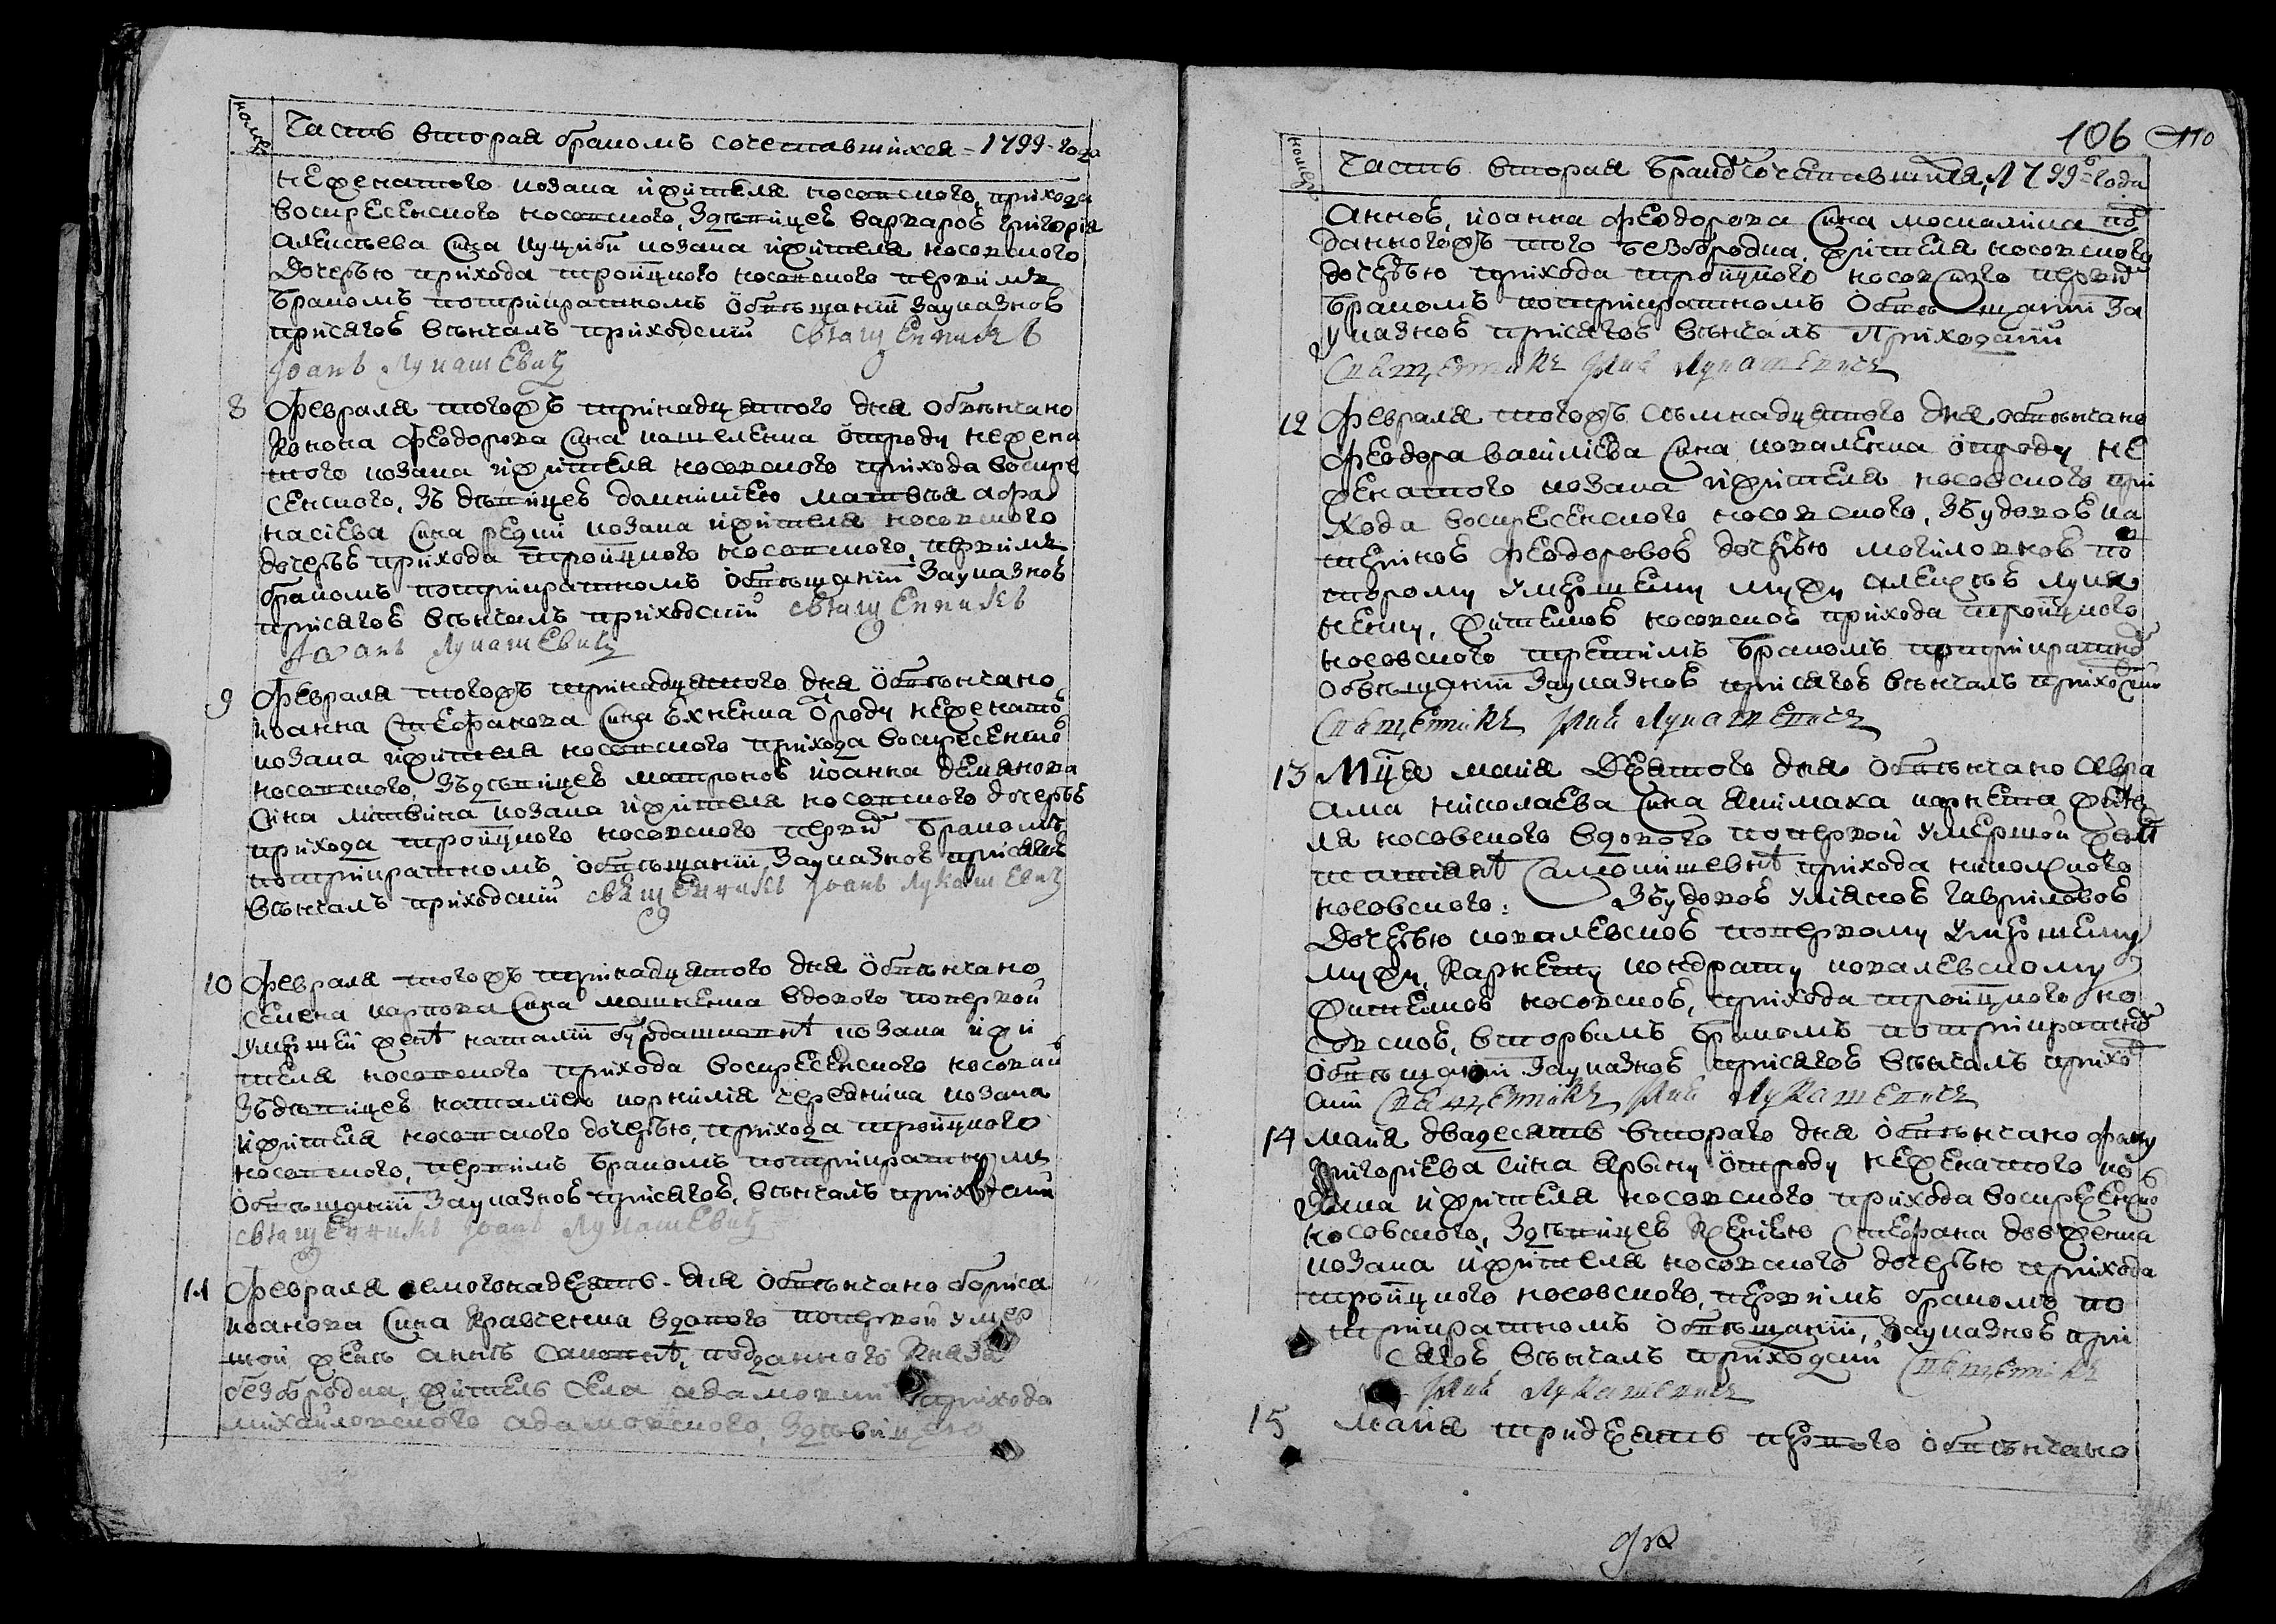 номеръ
Часть вторая бракомъ сочетавшихся - 1799 - года
неженатого козака и жителя носовского, прихода
воскресенского носовского, здѣвицеѣ варвароѣ григорія
алексѣева сина куцкой козака и жителя носовского
дочерью прихода тройцкого носовского первимъ
бракомъ потрикратномъ обвѣщаніи зауказноѣ
присягоѣ вѣнчалъ приходскій священникъ
Іоанъ Лукашевичъ
8 февраля тогожъ тринадцятого дня обвѣнчано
Конона феодорова сина кошеленка отроду нежена
того козака и жителя носовского прихода воскре
сенского, зъ дѣвицеѣ домникіею матвѣя афа
насіева сина редки козака и жителя носовского
дочерьѣ прихода тройцкого носовского, первимъ
бракомъ потрикратномъ обвѣщаніи зауказноѣ
присягоѣ вѣнчалъ приходскій священникъ
Іоанъ Лукашевичъ
9 февраля тогожъ тринадцятого дня обвѣнчано
иоанна стефанова сина ѣхненка отроду неженато
козака и жителя носовского прихода воскресенско
носовского, зъдѣвицеѣ матроноѣ иоанна демянова
сина литвина козака и жителя носовского дочерьѣ
прихода тройцкого носовского первим бракомъ
потрикратномъ обвѣщаніи, зауказноѣ присягоѣ
вѣнчалъ приходскій священникъ Іоанъ Лукашевичъ
10 февраля тогожъ тринадцятого дня обвѣнчано
семена карпова сина машненка вдового попервой
умершей женѣ наталіи бурдашковнѣ козака и жи
теля носовского прихода воскресенского носовкой
зъдѣвицеѣ наталіею корнилія середника козака
и жителя носовского дочерью, прихода тройцкого
носовского, первимъ бракомъ потрикратномъ
обвѣщаніи зауказноѣ присягоѣ, вѣнчалъ приходскій
священникъ Іоанъ Лукашевичъ
11 февраля семогонадесять - дня обвѣнчано бориса
иоанова сина Кравченка вдового попервой умер
шой женѣ аннѣ подданного Князя
безбородка, житель села адамовки прихода
михайловского адамовского, здѣвицею
106 110
номеръ
Часть вторая бракомъ сочетавшихся, 1799 года
анноѣ, иоанна феодорова сина москалика по
данногожъ того безбородка, жителя носовского
дочерью прихода тройцкого носовского первим
бракомъ потрикратномъ обвѣщаніи за
указноѣ присягоѣ вѣнчалъ приходскій
священникъ Іоанъ Лукашевичъ
12 февраля тогожъ сѣмнадцятого дня обвѣнчано
феодора василіева сина коваленка отроду не
женатого козака и жителя носовского при
хода воскресенского носовского, зъвдовоѣ ка
териноѣ феодоровоѣ дочерью могиловноѣ по
второму умершему мужу алексѣѣ лука
ненку, жителкоѣ носовскоѣ прихода тройцкого
носовского третимъ бракомъ потрикратном
обвѣщаніи зауказноѣ присягоѣ вѣнчалъ приходскій
священникъ Іоанъ Лукашевичъ
13 Мца маия девятого дня обвѣнчано авра
ама николаева сина якимаха жите
ля носовского вдового попервой умершой женѣ
прихода николского
носовского: зъвдовоѣ уліяноѣ гавриловоѣ
дочерью ковалевскоѣ попервому умершему
мужу, кондрату ковалевскому
жителкоѣ носовскоѣ, прихода тройцкого но
совскоѣ, вторымъ бракомъ потрикратном
обвѣщаніи зауказноѣ присягоѣ вѣнчалъ прихо
скій священникъ Іоанъ Лукашевичъ
14 маия двадесять второго дня обвѣнчано фоку
григоріева сина отроду неженатого ко
зака и жителя носовского прихода воскресенско
носовского, здѣвицеѣ Ксеніею стефана довженка
козака и жителя носовского дочерью прихода
тройцкого носовского, первимъ бракомъ по
трикратномъ обвѣщаніи, зауказноѣ при
сягоѣ вѣнчалъ приходскій священникъ
Іоанъ Лукашевичъ
15 Маия тридесять первого обвѣнчано